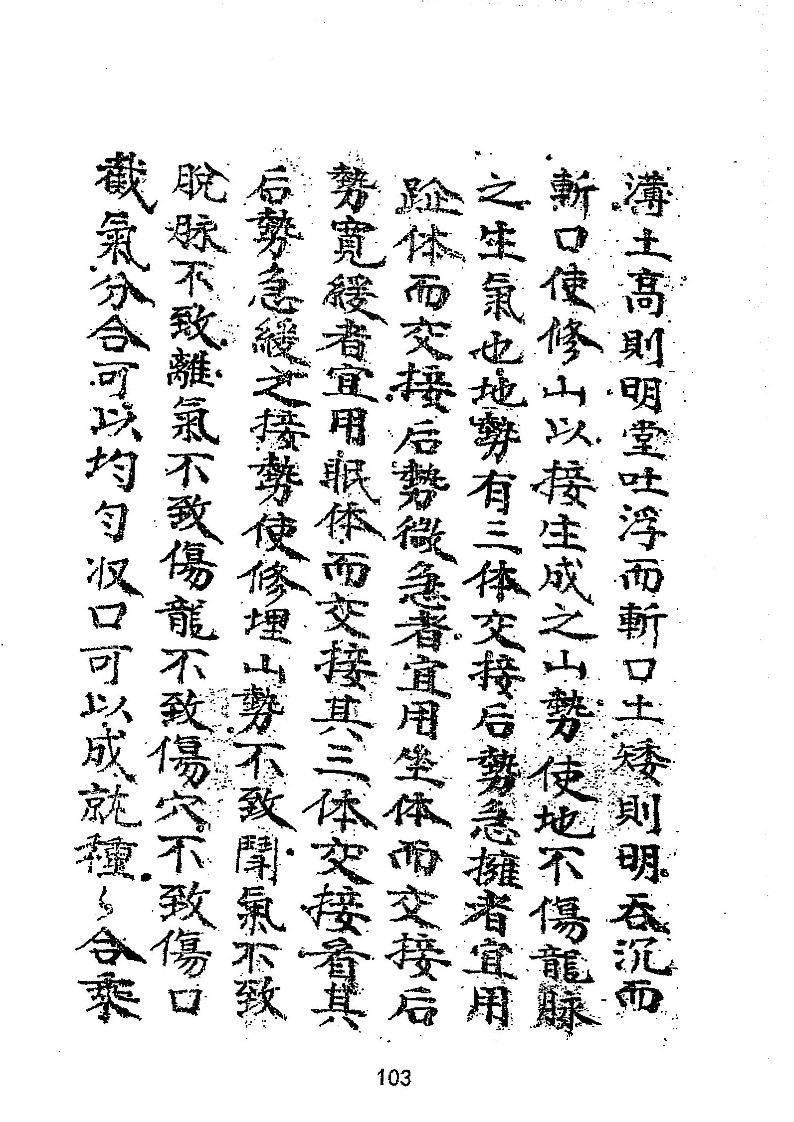 溝土高則明堂吐浮而斬口土矮則明吞沉而
斬口使修山以接生成之山勢使地不傷龍脉
之生氣也地勢有三体交接后勢急擁者宜用
趾体而交接后勢微急者宜用坐体而交接后
勢寬緩者宜用眠体而交接其三体交接看其
后勢急緩之接勢使修埋山勢不致鬪氣不致
脫脉不致離氣不致傷龍不致傷穴不致傷口
截氣分合可以均匀収口可以成就種〻合乘
103